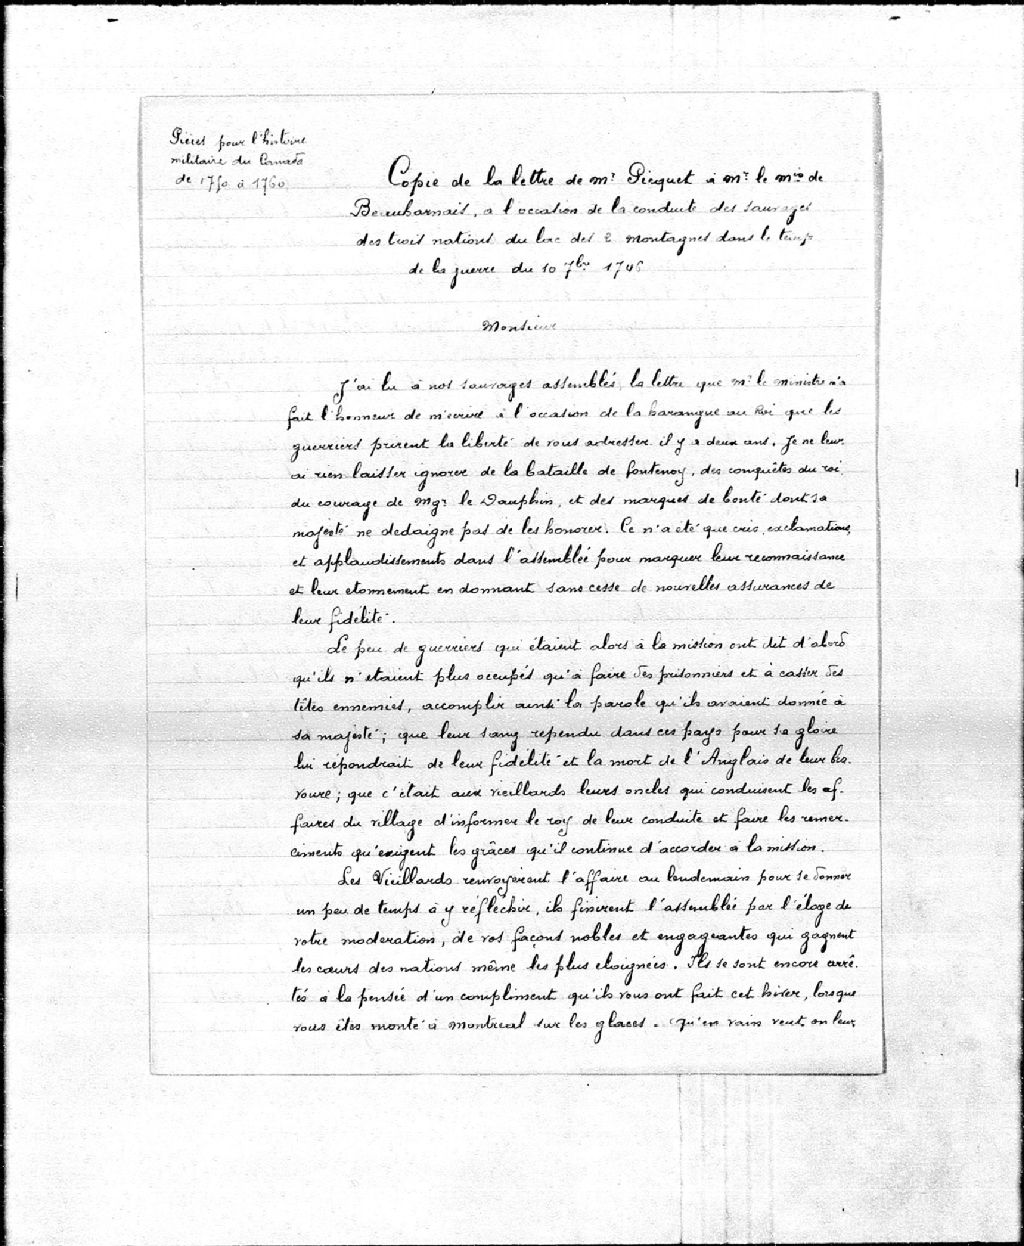 Pièces pour l'histoire
militaire du Canada
de 1750 à 1760
Copie de la lettre de Mr Picquet à Mr le Mis de
Beauharnais, a l'occasion de la conduite des sauvages
des trois nations du lac des 2 Montagnes dans le temps
de la guerre du 10 7bre 1746
Monsieur
J'ai lu à nos sauvages assemblés, la lettre que Mr le ministre m'a
fait l'honneur de m'ecrire à l'occasion de la harangue au Roi que les
guerriers prirent la liberté de vous adresser il y a deux ans. Je ne leur
ai rien laisser ignorer de la bataille de fontenoy, des conquêtes du roi,
du courage de Mgr le Dauphin, et des marques de bonté dont sa
majesté ne dedaigne pas de les honorer. Ce n'a eté que cris, exclamations,
et applaudissements dans l'assemblée pour marquer leur reconnaissance
et leur etonnement en donnant sans cesse de nouvelles assurances de
leur fidélité.
Le peu de guerriers qui étaient alors à la mission ont dit d'abord
qu'ils n'etaient plus occupés qu'à faire des prisonniers et à casser des
têtes ennemies, accomplir ainsi la parole qu'ils avaient donnée à
sa majesté; que leur sang rependu dans ces pays pour sa gloire
lui répondrait de leur fidélité et la mort de l'Anglais de leur bra-
voure; que c'était aux vieillards leurs oncles qui conduisent les af-
faires du village d'informer le roy de leur conduite et faire les remer-
ciments qu'exigent les grâces qu'il continue d'accorder à la mission.
Les Vieillards renvoyerent l'affaire au lendemain pour se donner
un peu de temps à y réfléchir, ils finirent l'assemblée par l'éloge de
votre moderation, de vos façons nobles et engageantes qui gagnent
les cœurs des nations même les plus eloignées. Ils se sont encore arrê-
tés à la pensée d'un compliment qu'ils vous ont fait cet hiver, lorsque
vous êtes monté à Montreal sur les glaces. Qu'en vain veut-on leur